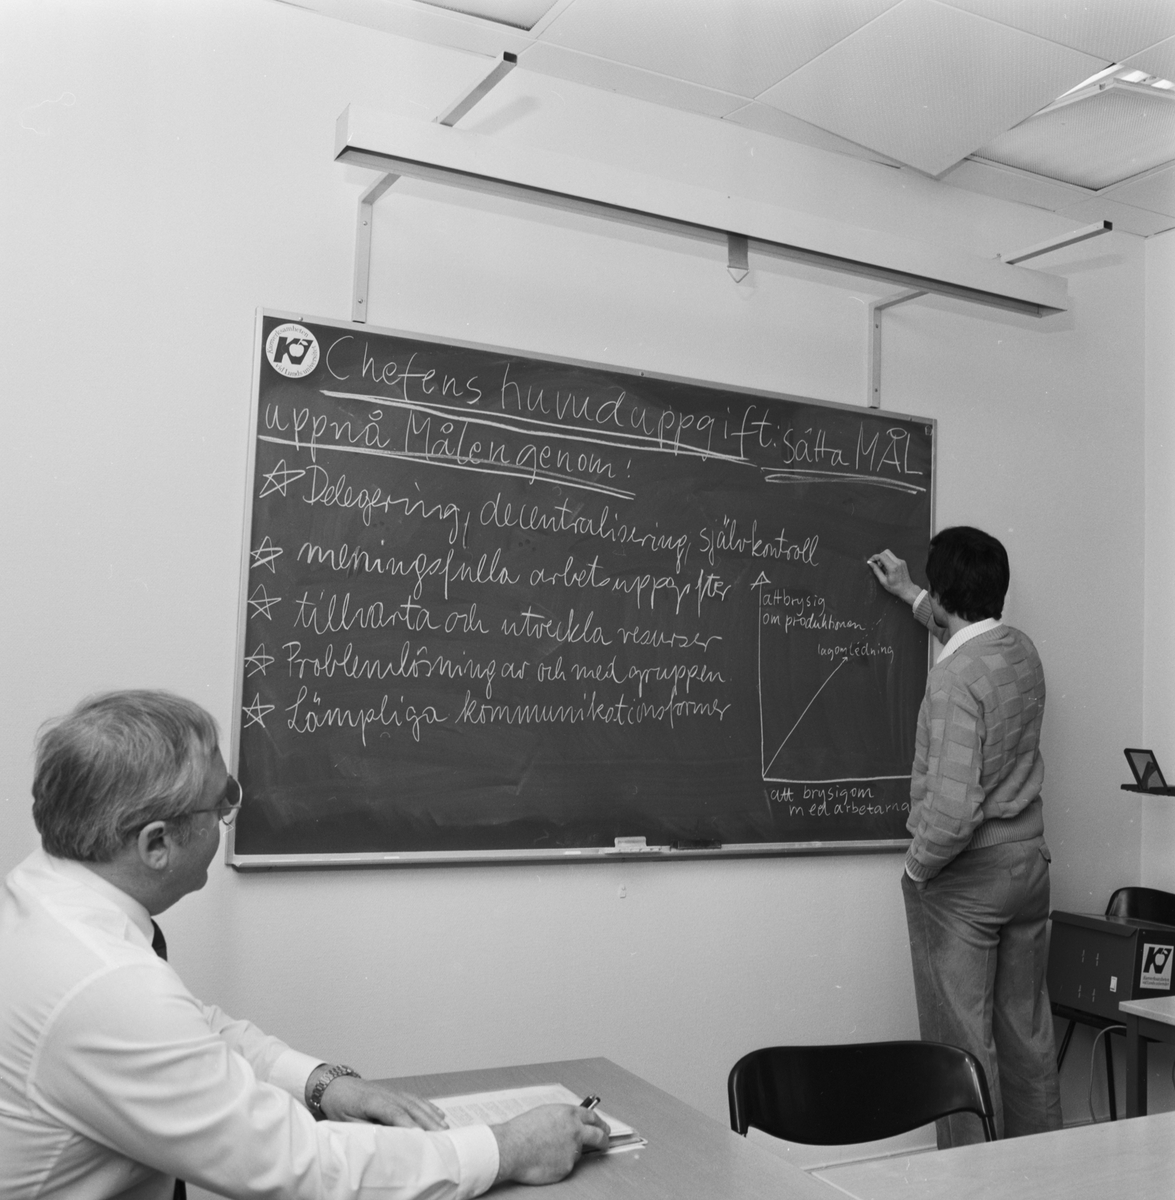 Chefens huvuduppgift: Sätta MÅL
uppnå Målen genom!
Delegering, decentralisering, självkontroll
meningsfulla arbetsuppgifter
tillvarta och utveckla resurser
Problemlösning av och med gruppen.
Lämpliga kommunikationsformer
att brysig
om produktionen
lagomledning
att brysig om
medarbetarna